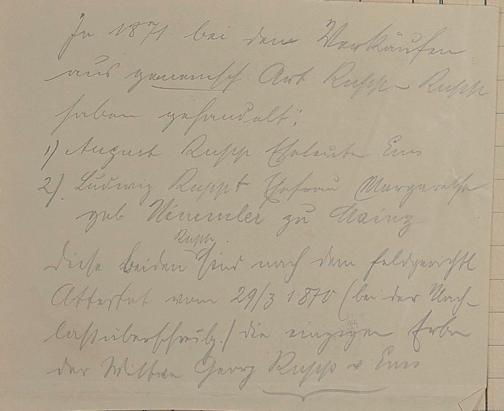 In 1871 bei dem Verkäufen
aus gemeinsch Art Rupp - Rupp
haben gehandelt:
1) August Rupp Eheleute Ems
2) Ludwig Rupp & Ehefrau Margarethe
geb Nimmler zu Mainz
Rupp
diese beiden sind nach dem feldgerichtl
Attestat vom 29/3 1870 (bei der Nach-
lassüberschreib.) die einzigen Erben
der Wittwe Georg Rupp v Ems